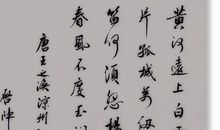 黄河遠上白
片孤城萬仞
笛何須怨楊
春風不度玉
唐王之渙凉州